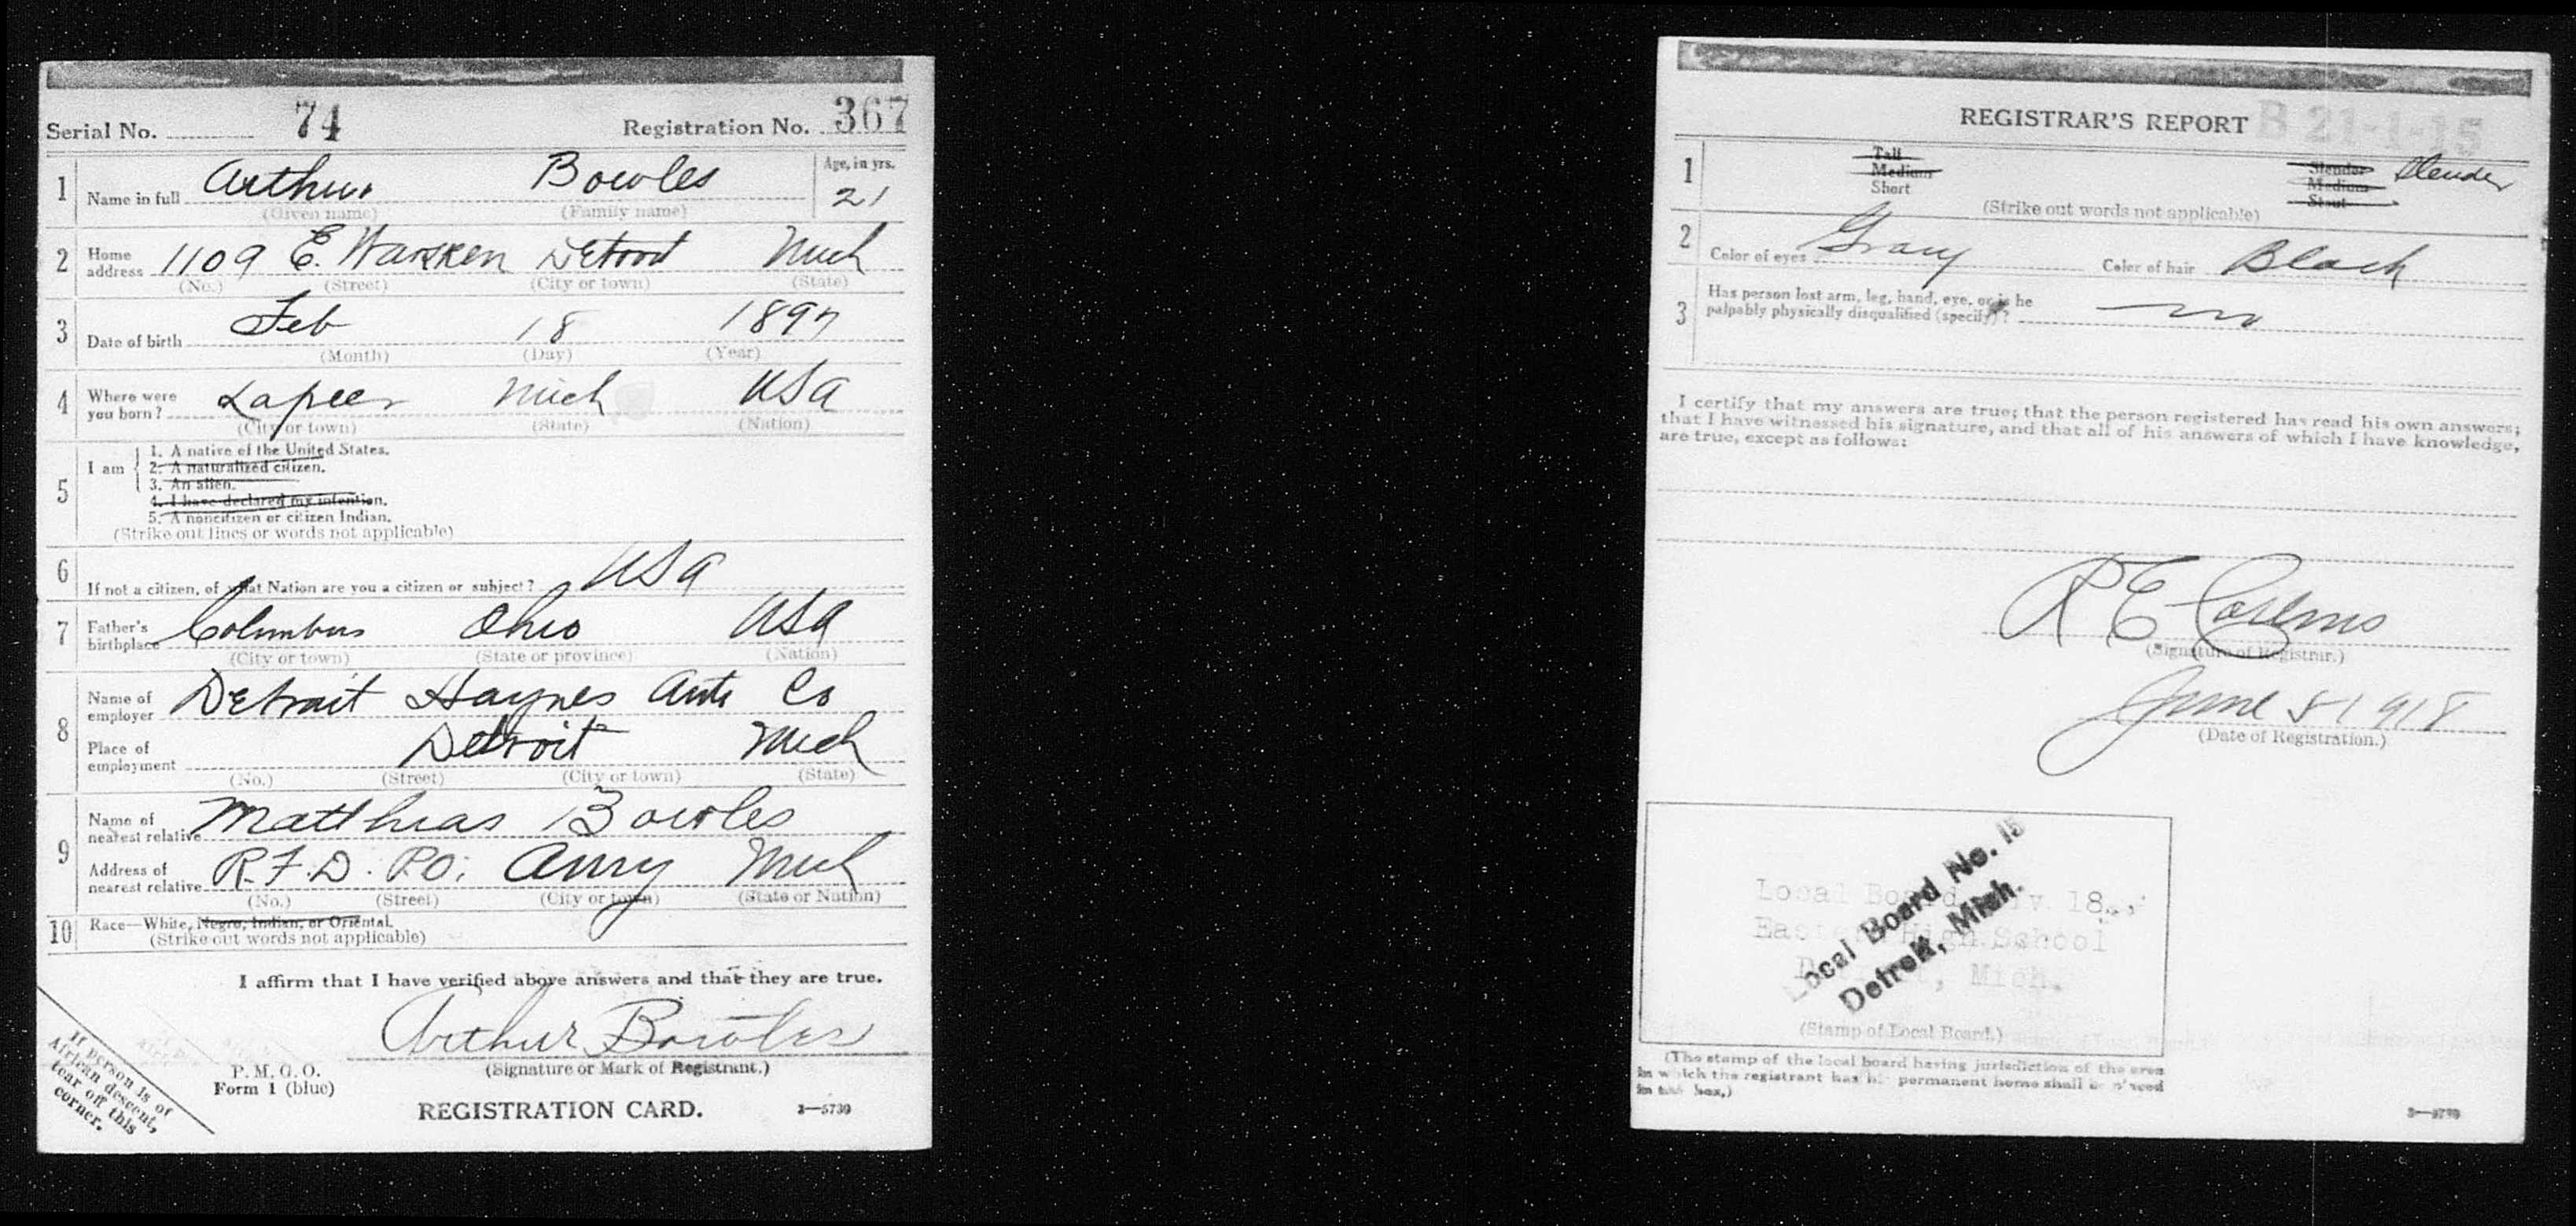 Serial No. 74 Registration No. 367
1 Name in full Arthur Bowles Age, in yrs. 21
(Given name) (Family name)
2 Home address 1109 E. Warren Detroit Mich
(No.) (Street) (City or town) (State)
3 Date of birth Feb 18 1897
(Month) (Day) (Year)
4 Where were you born? Lapeer Mich USA
(City or town) (State) (Nation)
5 I am
1. A native of the United States.
2. A naturalized citizen.
3. An alien.
4. I have declared my intention.
5. A noncitizen or citizen Indian.
(Strike out lines or words not applicable)
6 If not a citizen, of what Nation are you a citizen or subject? USA
7 Father's birthplace Columbus Ohio USA
(City or town) (State or province) (Nation)
8 Name of employer Detroit Haynes Auto Co
Place of employment Detroit Mich
(No.) (Street) (City or town) (State)
9 Name of nearest relative Matthias Bowles
Address of nearest relative R.F.D. P.O. Mich
(No.) (Street) (City or town) (State or Nation)
10 Race—White, Negro, Indian, or Oriental.
(Strike out words not applicable)
I affirm that I have verified above answers and that they are true.
Arthur Bowles
(Signature or Mark of Registrant.)
P. M. G. O.
Form 1 (blue)
REGISTRATION CARD.
3—5730
If person is of
African descent,
tear off this
corner.
REGISTRAR'S REPORT B 21-1-15
1 Tall Slender Slender
Medium Medium
Short Stout
(Strike out words not applicable)
2 Color of eyes Gray Color of hair Black
3 Has person lost arm, leg, hand, eye, or is he
palpably physically disqualified (specify)? no
I certify that my answers are true; that the person registered has read his own answers;
that I have witnessed his signature, and that all of his answers of which I have knowledge,
are true, except as follows:
R E
(Signature of Registrar.)
June 5 1918
(Date of Registration.)
Local Board Div. 18
Eastern High School
Detroit, Mich.
Local Board No. 15
Detroit, Mich.
(Stamp of Local Board.)
(The stamp of the local board having jurisdiction of the area
in which the registrant has his permanent home shall be placed
in this box.)